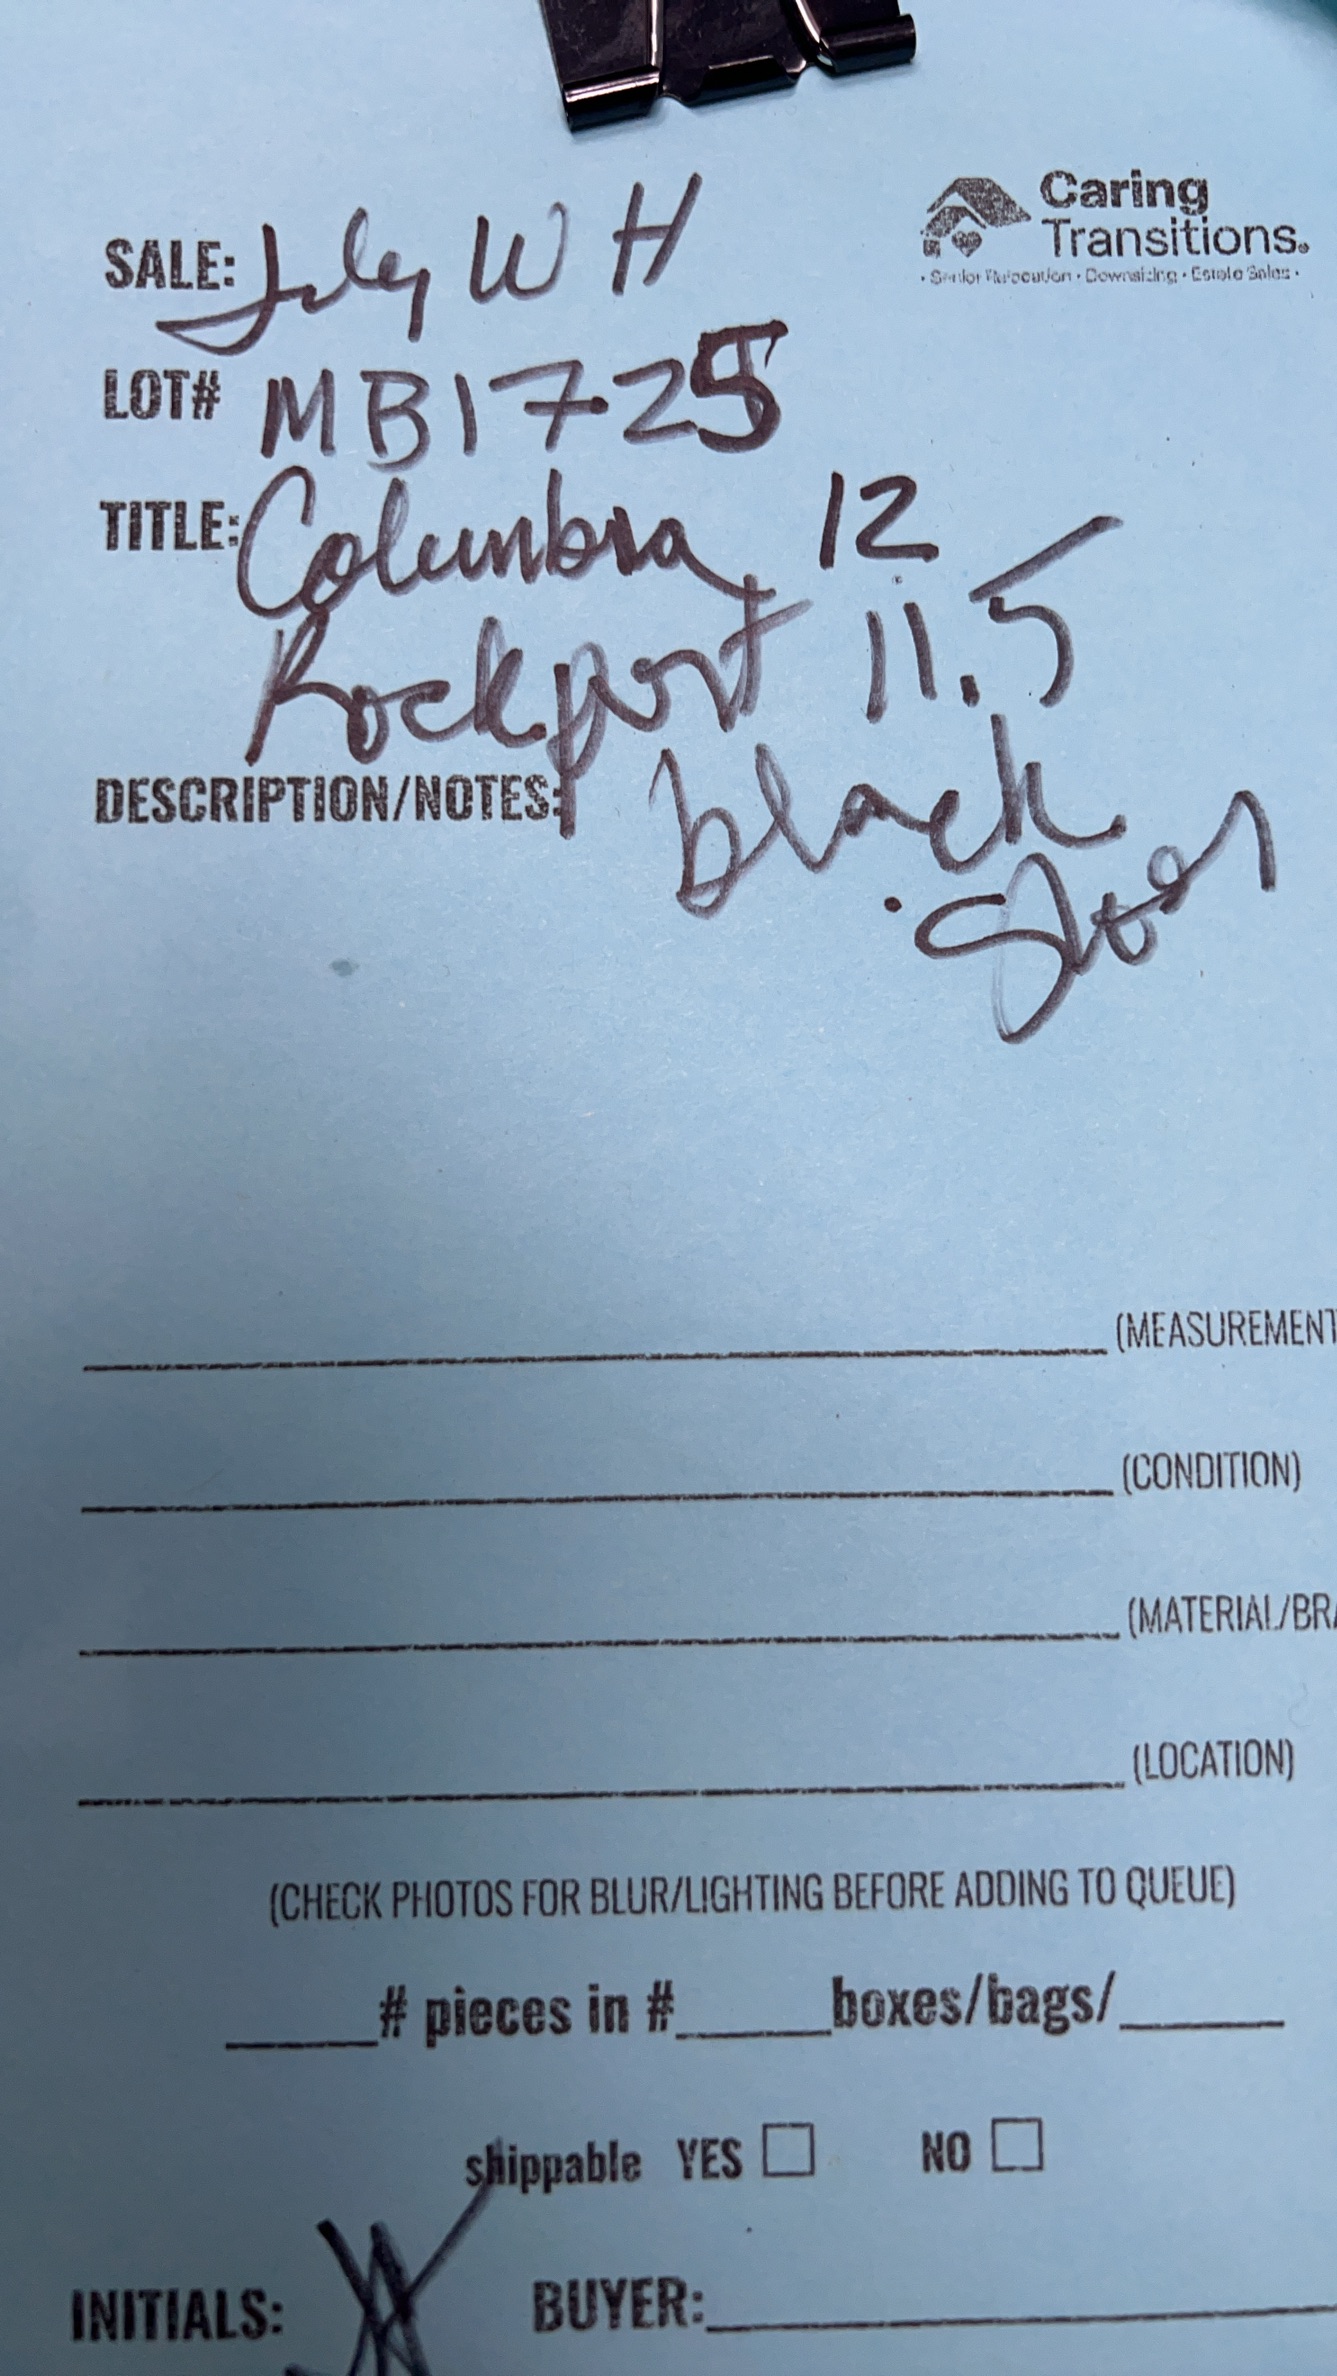 Caring
Transitions.
• Senior Relocation • Downsizing • Estate Sales •
SALE: July WH
LOT# MB1725
TITLE: Columbia 12
Rockport 11.5
black
Shoes
DESCRIPTION/NOTES:
(MEASUREMENT
(CONDITION)
(MATERIAL/BRA
(LOCATION)
(CHECK PHOTOS FOR BLUR/LIGHTING BEFORE ADDING TO QUEUE)
____# pieces in #____boxes/bags/____
shippable YES ☐ NO ☐
INITIALS: BUYER:____